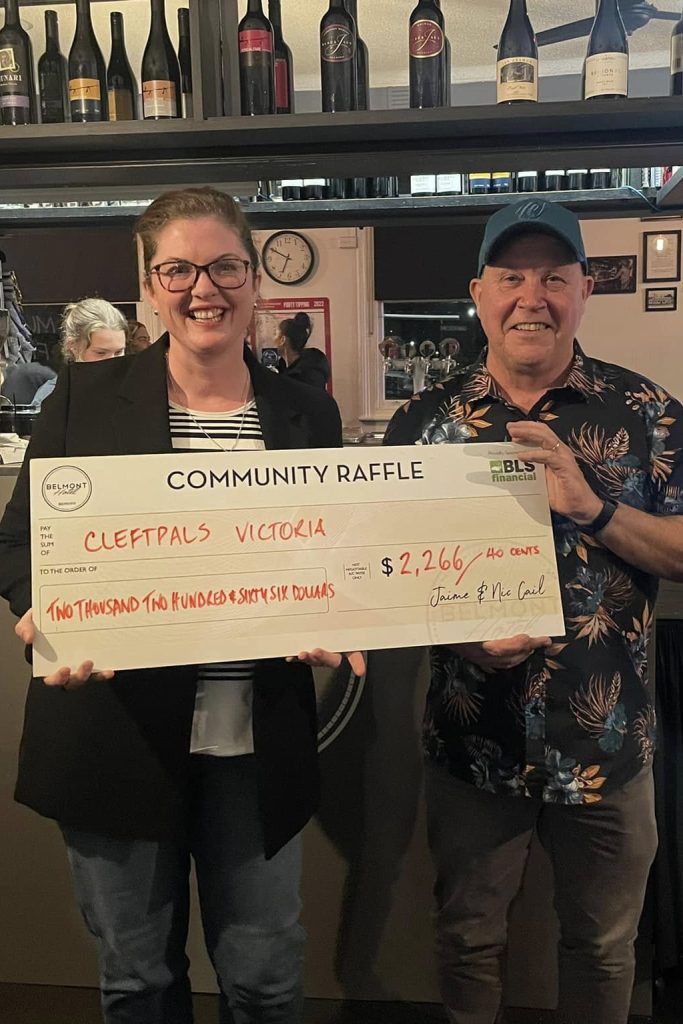 FOOTY TIPPING 2022
BELMONT
Hotel
BENDIGO
COMMUNITY RAFFLE
BLS
financial
PAY
THE
SUM
OF
CLEFTPALS VICTORIA
TO THE ORDER OF
TWO THOUSAND TWO HUNDRED & SIXTY SIX DOLLARS
NOT
NEGOTIABLE
A/C PAYEE
ONLY
$ 2,266/ 40 CENTS
Jaime & Nic Cail
BELMONT